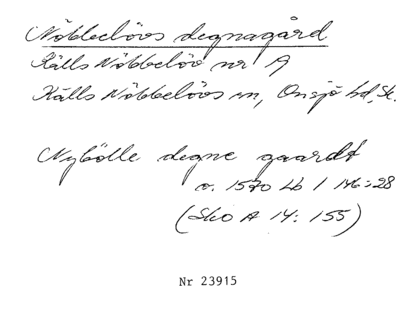 Nöbbelövs degnagård
Källs Nöbbelöv nr 9
Källs Nöbbelövs sn, Onsjö hd, Sk.
Nybölle degne gaardt
o. 1570 Lb 1 146:28
(Sko A 14: 155)
Nr 23915